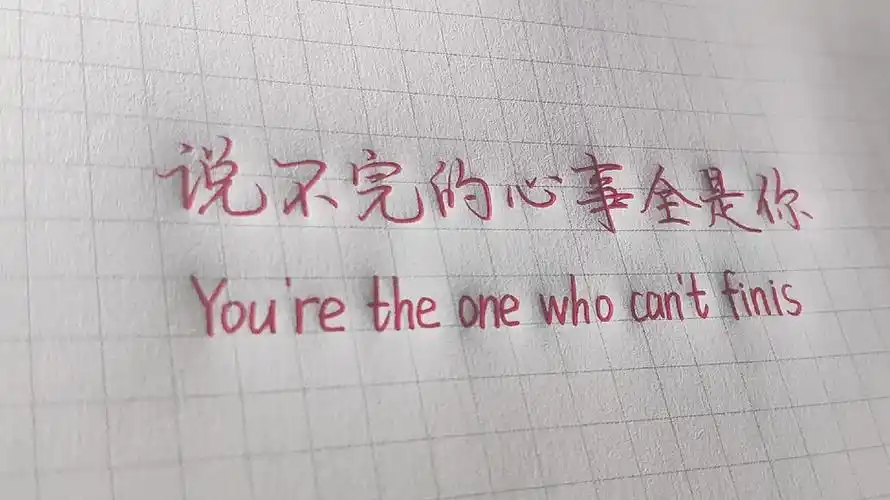 说不完的心事全是你
You're the one who can't finis